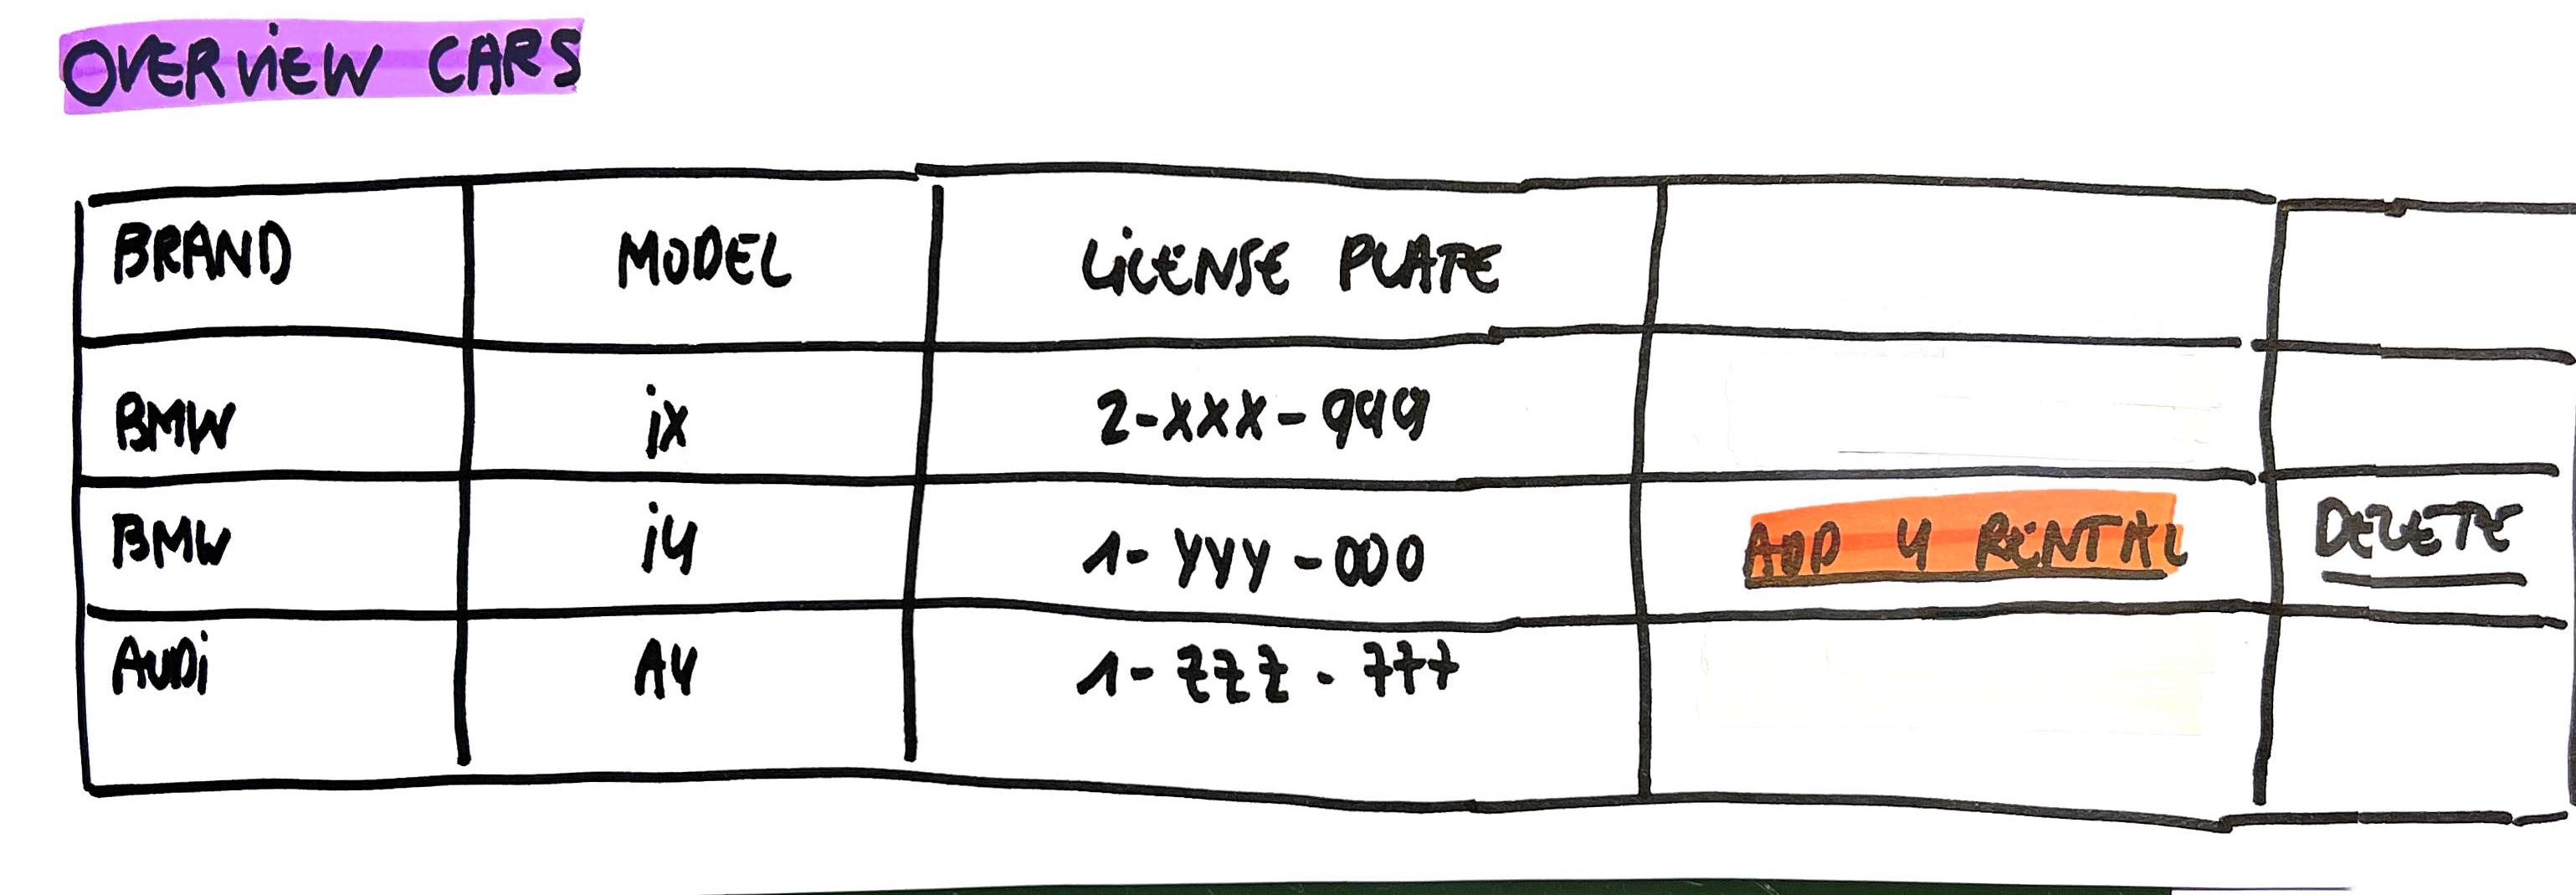 OVERVIEW CARS
BRAND MODEL LICENSE PLATE
BMW iX 2-XXX-999
BMW i4 1-YYY-000 ADD 4 RENTAL DELETE
AUDi A4 1-ZZZ-777